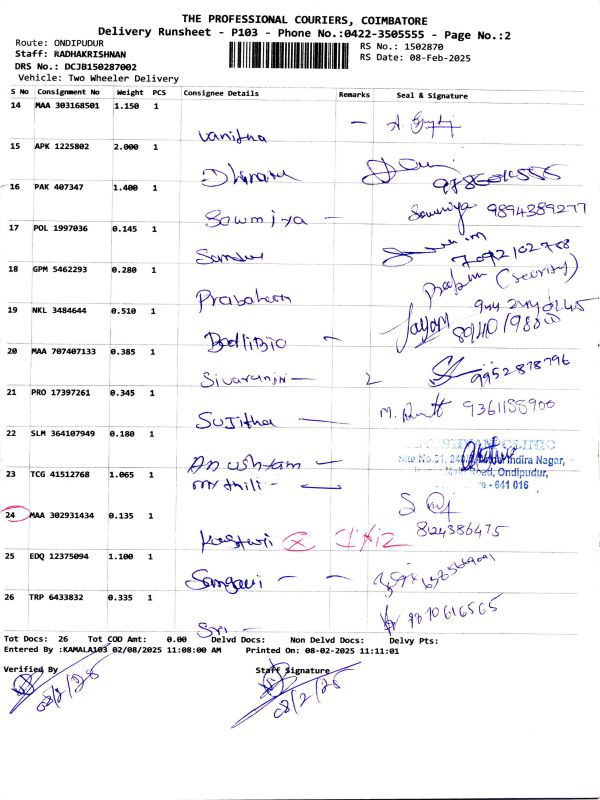 THE PROFESSIONAL COURIERS, COIMBATORE
Delivery Runsheet - P103 - Phone No.:0422-3505555 - Page No.:2
Route: ONDIPUDUR
RS No.: 1502870
Staff: RADHAKRISHNAN
RS Date: 08-Feb-2025
DRS No.: DCJB150287002
Vehicle: Two Wheeler Delivery
S No Consignment No Weight PCS Consignee Details Remarks Seal & Signature
14 MAA 303168501 1.150 1
Vanitha
15 APK 1225802 2.000 1
16 PAK 407347 1.400 1
Sowmiya - Sowmiya 9894389277
17 POL 1997036 0.145 1
7092102768
18 GPM 5462293 0.280 1
(Security)
19 NKL 3484644 0.510 1
Jayam
20 MAA 707407133 0.385 1
9952878796
21 PRO 17397261 0.345 1
Sujitha - M. 9361188900
22 SLM 364107949 0.180 1
Indira Nagar,
Road, Ondipudur,
- 641 016
23 TCG 41512768 1.065 1
Mythili -
24 MAA 302931434 0.135 1
8124386475
25 EDQ 12375094 1.100 1
Sangavi - -
26 TRP 6433832 0.335 1
Sri - 9870616565
Tot Docs: 26 Tot COD Amt: 0.00 Delvd Docs: Non Delvd Docs: Delvy Pts:
Entered By :KAMALA103 02/08/2025 11:08:00 AM Printed On: 08-02-2025 11:11:01
Verified By Staff Signature
08/2/25 08/2/25